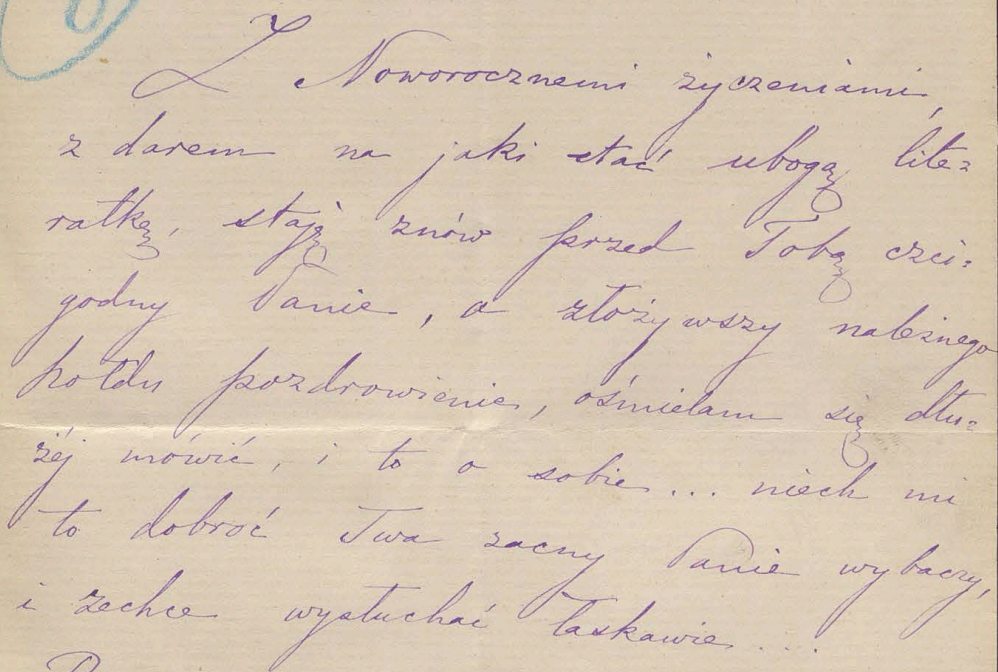 Z Noworocznemi życzeniami,
z darem na jaki stać ubogą lite=
ratkę, staję znów przed Tobą czci=
godny Panie, a złożywszy należnego
hołdu pozdrowienie, ośmielam się dłu=
żéj mówić, i to o sobie... niech mi
to dobroć Twa zacny Panie wybaczy,
i zechce wysłuchać łaskawie....